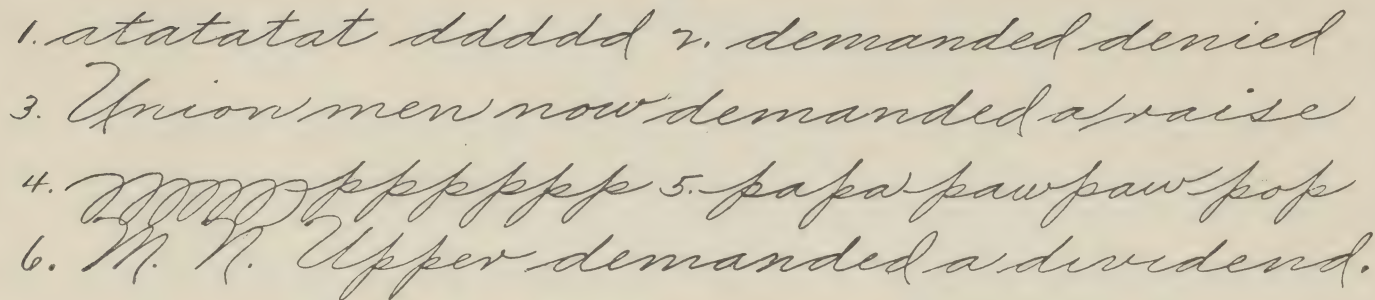 1. atatatat ddddd 2. demanded denied
3. Union men now demanded a raise
4. pppppp 5. papa pawpaw pop
6. M. N. Upper demanded a dividend.